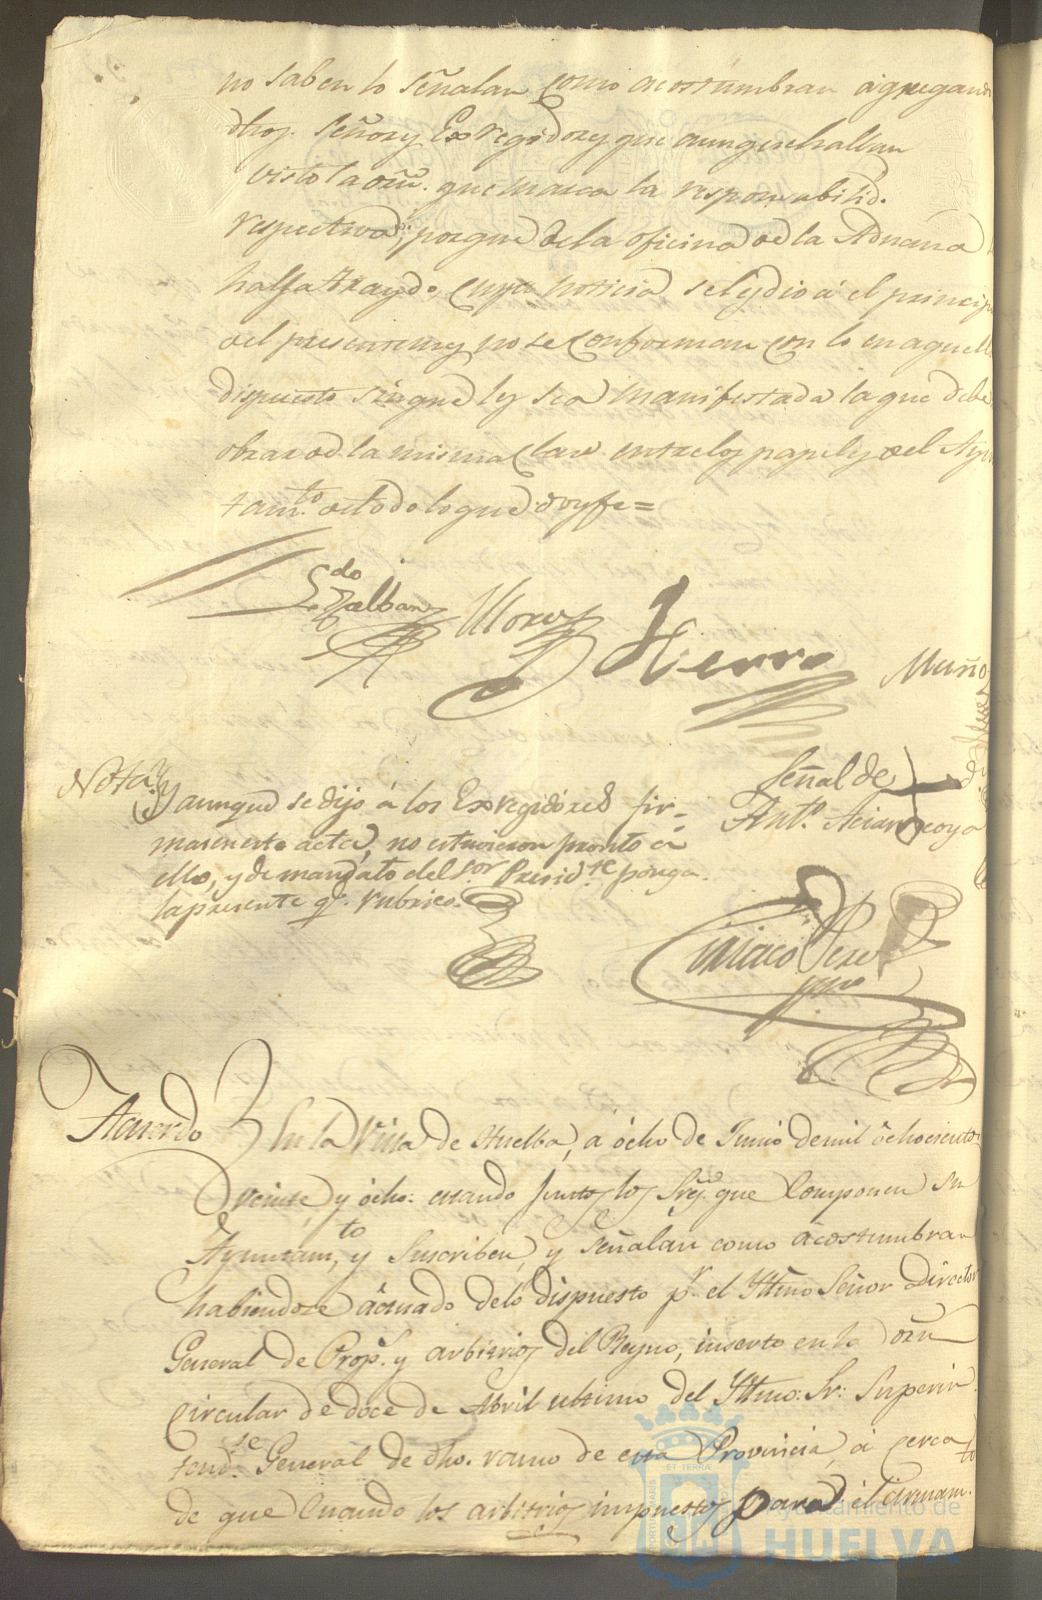 no saben lo señalan como acostumbran agregando
dhos. señores Ex regidores que aunque hallan
visto la orn. que marca la responsabilid.
respectiva, porque de la oficina de la Aduana
halla traydo, cuya noticia se les dio á el princip
del presente mes, no se conforman con lo en aquella
dispuesto sin que les sea manifestada la que debe
obrar de la misma clase entre los papeles del Ayun
tamto. de todo lo que doy fe=
Ldo Galban Moro Hierro Muño
Nota. Señal de
Y aunque se dijo á los Ex regidores fir-
Anto.
masen este acta, no estuvieron pronto á
ello, y de mandato del Sor Presidte pongo
la presente qe. rubrico.
Ciriaco Perez
Acuerdo En la Villa de Huelba, á ócho de Junio de mil óchocientos
veinte y ócho: estando juntos los Sres. que componen su
Ayuntamto, y suscriben, y señalan como ácostumbran
habiendose áctuado de lo dispuesto pr. el Yltmo Señor Director
General de Propos. y arbitrios del Reyno, inserto en la orn
circular de doce de Abril ultimo del Yltmo: Sr: Superin
tendse. General de dho. ramo de esta Provincia, á cerca
de que cuando los arbitrios impuestos para él
Ayuntamiento de
HUELVA